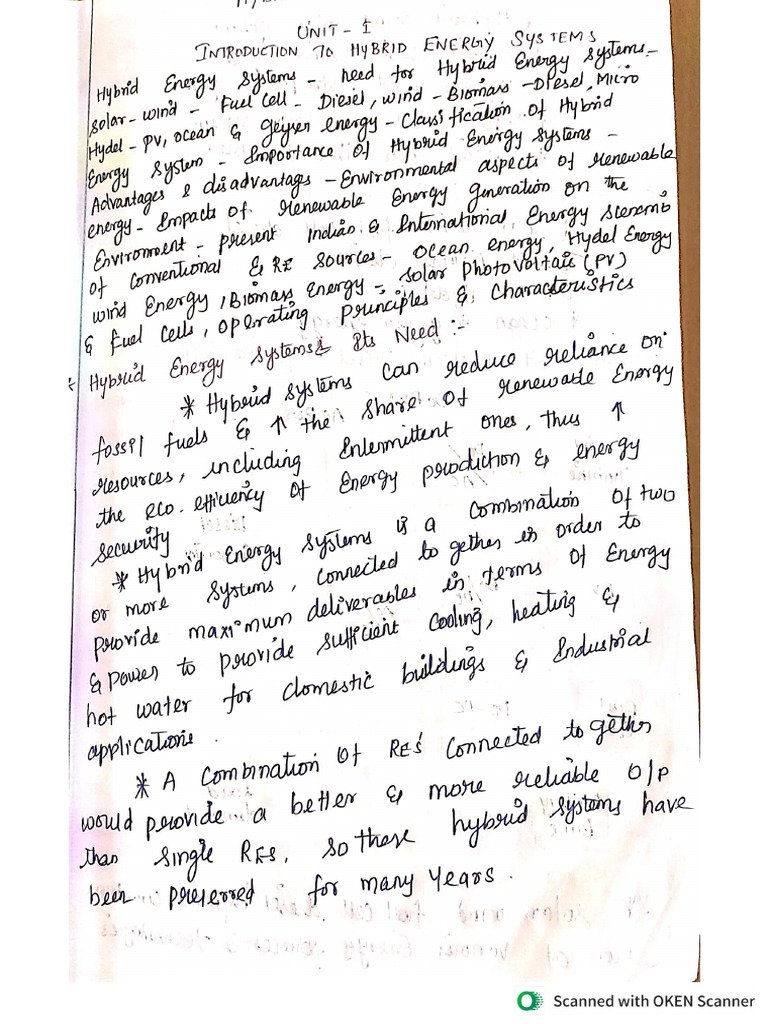 UNIT - I
INTRODUCTION TO HYBRID ENERGY SYSTEMS
Hybrid Energy Systems - need for Hybrid Energy Systems -
Solar - wind - Fuel Cell - Diesel, wind - Biomass - Diesel, Micro
Hydel - PV, ocean & geyser energy - Classification of Hybrid
Energy System - Importance of Hybrid Energy Systems -
Advantages & disadvantages - Environmental aspects of renewable
energy - Impacts of renewable Energy generation on the
Environment - present Indian & International Energy Scenario
of Conventional & RE Sources - Ocean energy, Hydel Energy
wind Energy, Biomass Energy - Solar Photovoltaic (PV)
& fuel cells, Operating Principles & Characteristics
* Hybrid Energy Systems & Its Need :-
* Hybrid systems can reduce reliance on
fossil fuels & ↑ the share of renewable Energy
resources, including Intermittent ones, thus ↑
the eco. efficiency of Energy production & energy
security
* Hybrid Energy Systems is a combination of two
or more systems, connected together in order to
provide maximum deliverables in terms of Energy
& power to provide sufficient cooling, heating &
hot water for domestic buildings & Industrial
applications.
* A Combination of RES' connected together
would provide a better & more reliable O/P
than single RES, so these hybrid systems have
been preserred for many years.
Scanned with OKEN Scanner